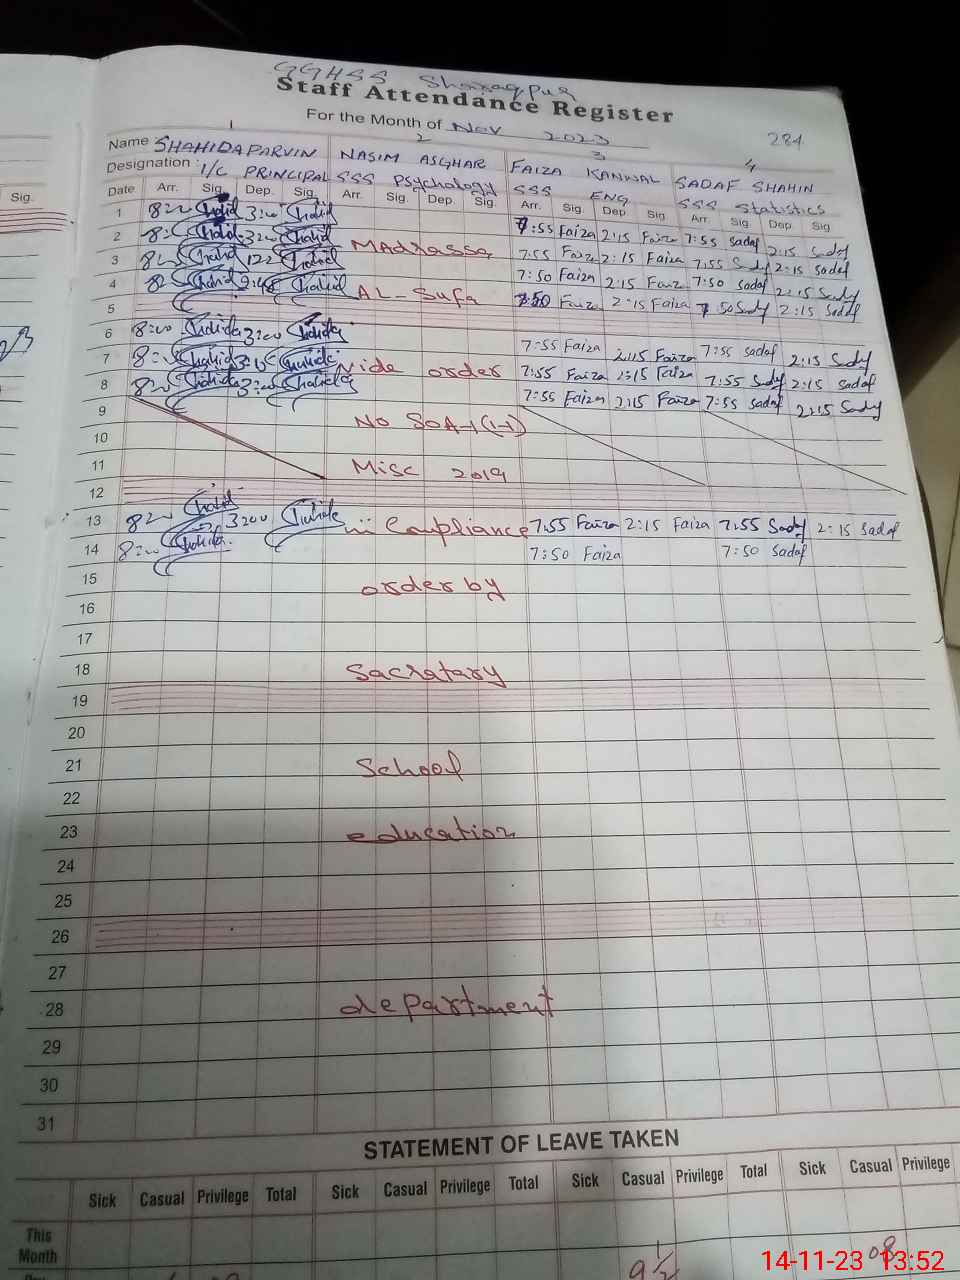 GGHSS Sharaqpur
Staff Attendance Register
For the Month of Nov 2023
284
1 2 3 4
Name SHAHIDA PARVIN NASIM ASGHAR FAIZA KANWAL SADAF SHAHIN
Designation : I/C PRINCIPAL SSS Psychology SSS ENG SSS Statistics
Sig.
Date Arr. Sig. Dep. Sig. Arr. Sig. Dep. Sig. Arr. Sig. Dep. Sig. Arr. Sig. Dep. Sig
1 7:55 Faiza 2:15 Faiza 7:55 Sadaf 2:15 Sadaf
2 Madrassa 7:55 Faiza 2:15 Faiza 7:55 Sadaf 2:15 Sadaf
3 7:50 Faiza 2:15 Faiza 7:50 Sadaf 2:15 Sadaf
4 AL-Sufa 7:50 Faiza 2:15 Faiza 7:50 Sadaf 2:15 Sadaf
5
6 8:00 Shahida 3:00 Shahida 7:55 Faiza 2:15 Faiza 7:55 Sadaf 2:15 Sadaf
7 Shahida Shahida vide order 7:55 Faiza 2:15 Faiza 7:55 Sadaf 2:15 Sadaf
8 Shahida Shahida 7:55 Faiza 2:15 Faiza 7:55 Sadaf 2:15 Sadaf
9 No SOA-1(1-1)
10
11 Misc 2019
12
13 Compliance 7:55 Faiza 2:15 Faiza 7:55 Sadaf 2:15 Sadaf
14 8:00 Shahida 7:50 Faiza 7:50 Sadaf
15 order by
16
17
18 Sacratary
19
20
21 School
22
23 education
24
25
26
27
28 department
29
30
31
STATEMENT OF LEAVE TAKEN
Sick Casual Privilege Total Sick Casual Privilege Total Sick Casual Privilege Total Sick Casual Privilege
This
Month
9½ 08
14-11-23 13:52